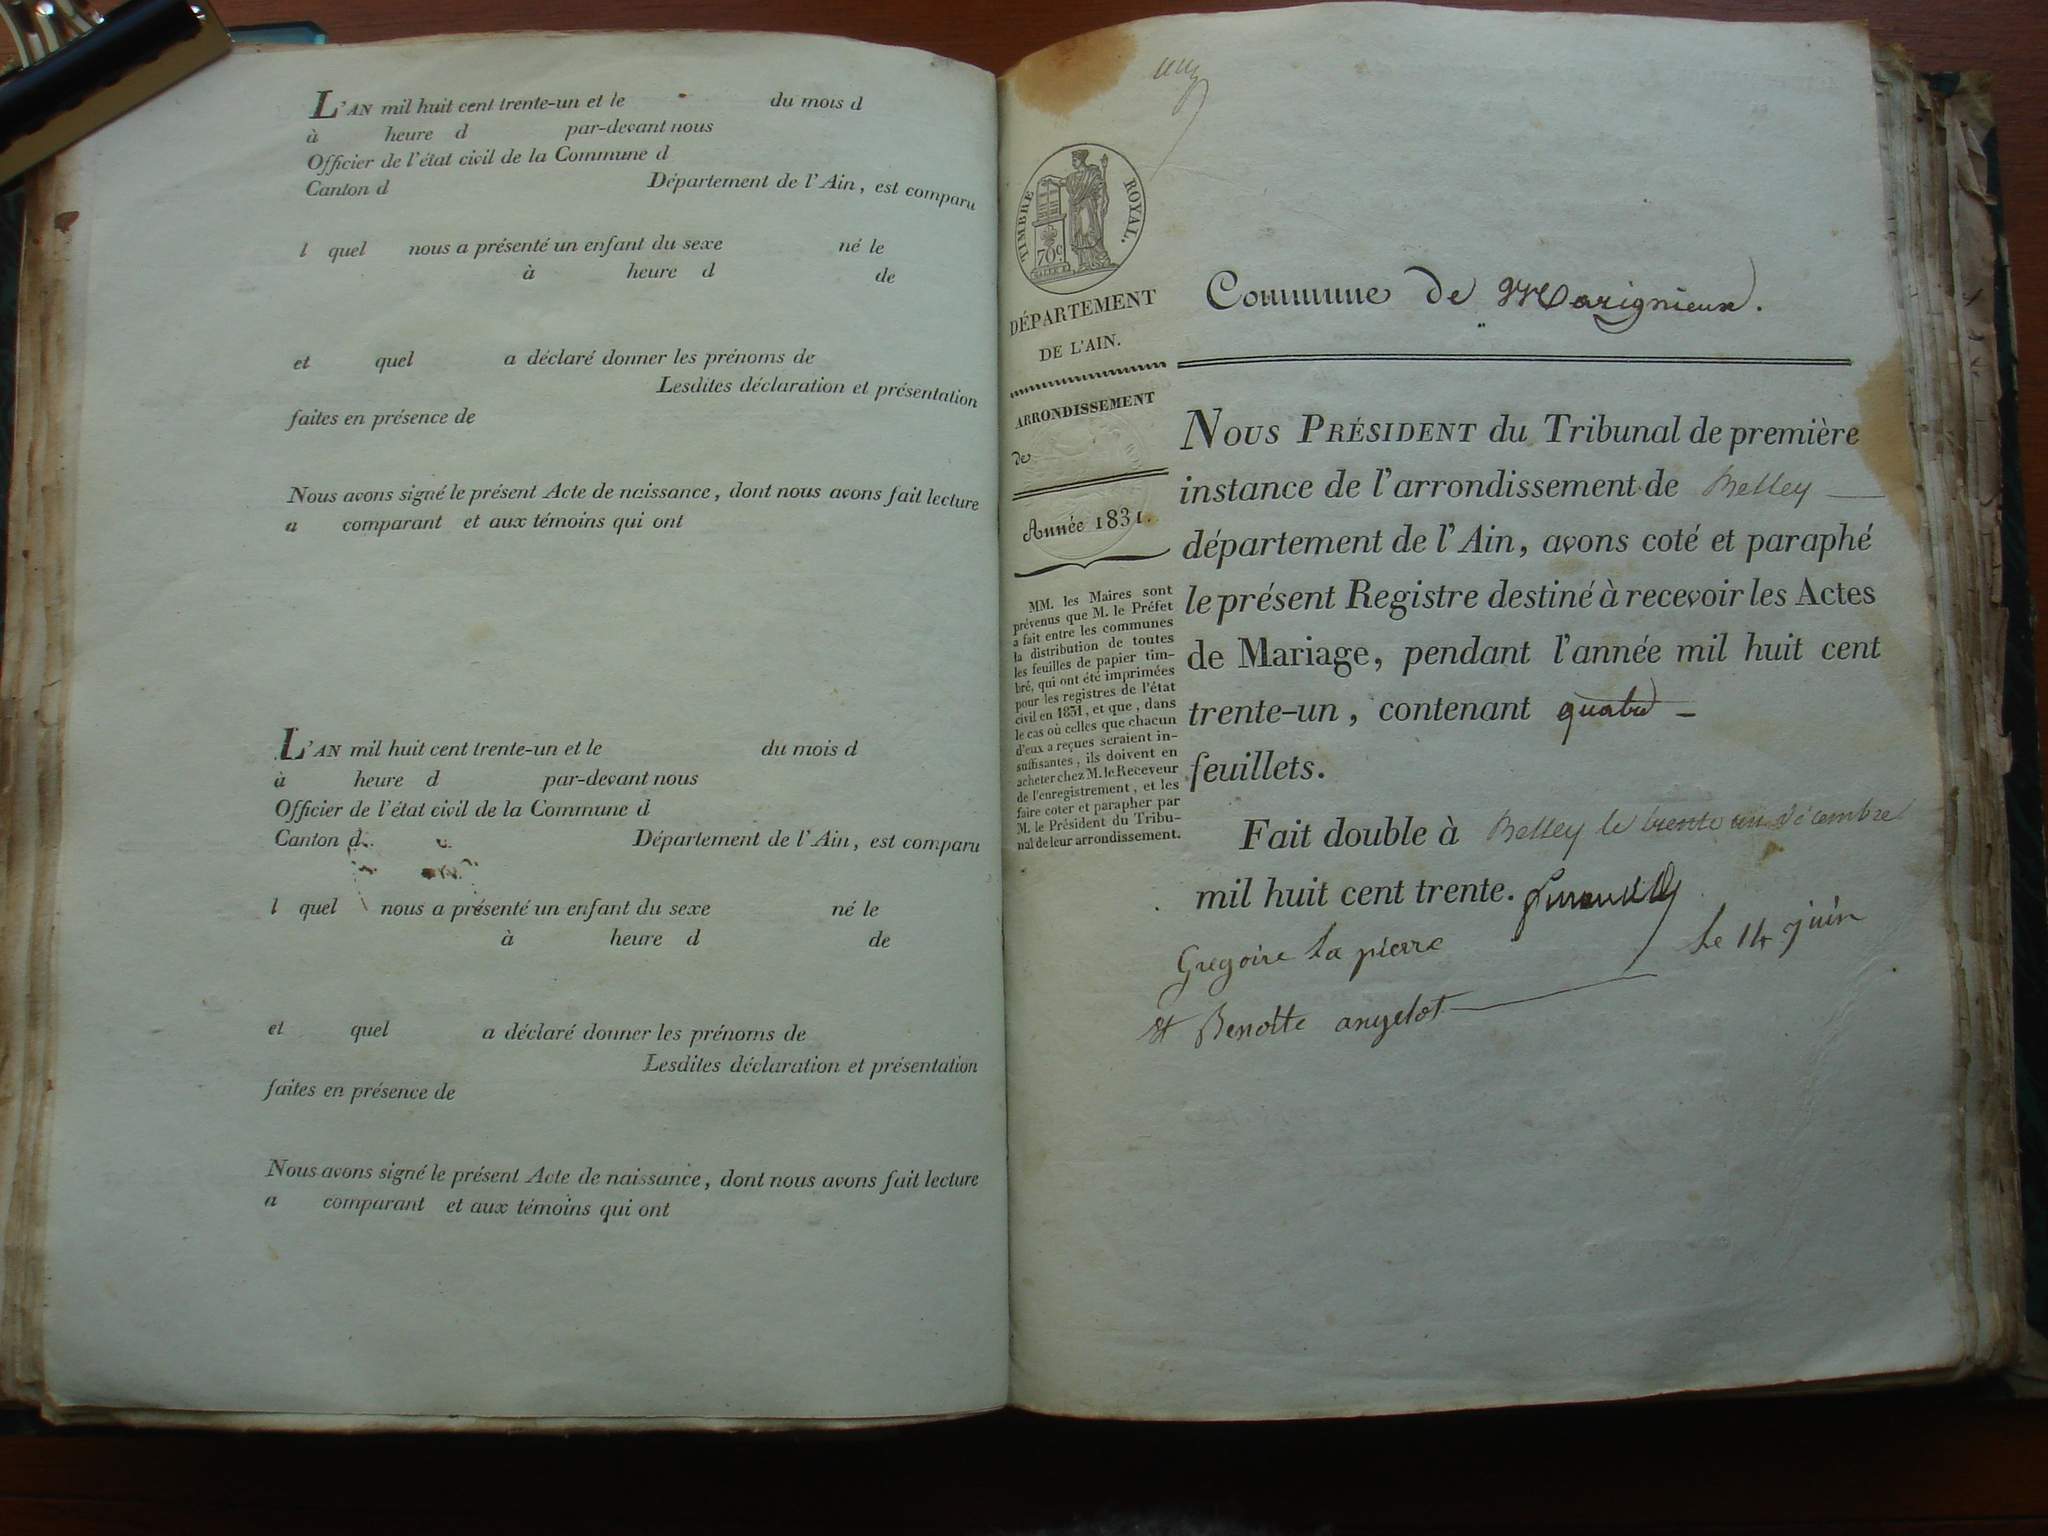 L'AN mil huit cent trente-un et le du mois d
à heure d par-devant nous
Officier de l'état civil de la Commune d
Canton d Département de l'Ain, est comparu
l quel nous a présenté un enfant du sexe né le
à heure d de
et quel a déclaré donner les prénoms de
Lesdites déclaration et présentation
faites en présence de
Nous avons signé le présent Acte de naissance, dont nous avons fait lecture
a comparant et aux témoins qui ont
L'AN mil huit cent trente-un et le du mois d
à heure d par-devant nous
Officier de l'état civil de la Commune d
Canton d Département de l'Ain, est comparu
l quel nous a présenté un enfant du sexe né le
à heure d de
et quel a déclaré donner les prénoms de
Lesdites déclaration et présentation
faites en présence de
Nous avons signé le présent Acte de naissance, dont nous avons fait lecture
a comparant et aux témoins qui ont
TIMBRE ROYAL.
70c
DÉPARTEMENT
DE L'AIN.
ARRONDISSEMENT
de
Année 1831.
MM. les Maires sont
prévenus que M. le Préfet
a fait entre les communes
la distribution de toutes
les feuilles de papier tim-
bré, qui ont été imprimées
pour les registres de l'état
civil en 1831, et que, dans
le cas où celles que chacun
d'eux a reçues seraient in-
suffisantes, ils doivent en
acheter chez M. le Receveur
de l'enregistrement, et les
faire coter et parapher par
M. le Président du Tribu-
nal de leur arrondissement.
Commune de Marignieux.
NOUS PRÉSIDENT du Tribunal de première
instance de l'arrondissement de Belley
département de l'Ain, avons coté et paraphé
le présent Registre destiné à recevoir les Actes
de Mariage, pendant l'année mil huit cent
trente-un, contenant quatre
feuillets.
Fait double à Belley le trente un décembre
mil huit cent trente.
Gregoire la pierre Le 14 juin
et Benoite angelot